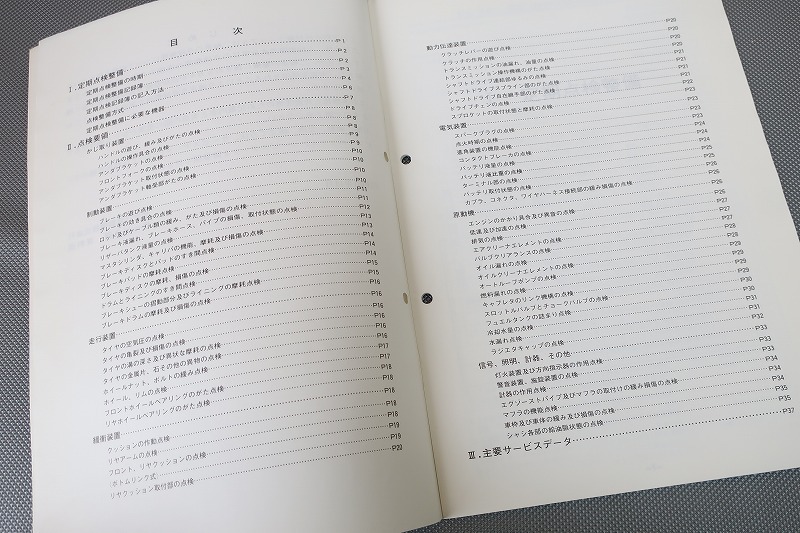 目 次
Ⅰ.定期点検整備………P1
定期点検整備の時期………P2
定期点検整備記録簿………P2
定期点検記録簿の記入方法………P3
点検整備方式………P4
定期点検整備に必要な機器………P6
Ⅱ.点検要領………P7
かじ取り装置………P8
ハンドルの遊び、緩み及びがたの点検………P8
ハンドルの操作具合の点検………P8
アンダブラケットの点検………P9
フロントフォークの点検………P9
アンダブラケット取付状態の点検………P10
アンダブラケット軸受部がたの点検………P10
制動装置
ブレーキの遊び点検………P10
ブレーキの効き具合の点検………P11
ロッド及びケーブル類の緩み、がた及び損傷の点検………P11
ブレーキ液漏れ、ブレーキホース、パイプの損傷、取付状態の点検………P12
リザーバタンク液量の点検………P13
マスタシリンダ、キャリパの機能、摩耗及び損傷の点検………P13
ブレーキディスクとパッドのすき間点検………P14
ブレーキパットの摩耗点検………P14
ブレーキディスクの摩耗、損傷の点検………P15
ドラムとライニングのすき間点検………P15
ブレーキシューの摺動部分及びライニングの摩耗点検………P16
ブレーキドラムの摩耗及び損傷の点検………P16
走行装置
タイヤの空気圧の点検………P16
タイヤの亀裂及び損傷の点検………P16
タイヤの溝の深さ及び異状な摩耗の点検………P16
タイヤの金属片、石その他の異物の点検………P17
ホイールナット、ボルトの緩み点検………P17
ホイール、リムの点検………P17
フロントホイールベアリングのがた点検………P18
リヤホイールベアリングのがた点検………P18
緩衝装置
クッションの作動点検………P18
リヤアームの点検………P19
フロント、リヤクッションの点検………P19
(ボトムリンク式)
リヤクッション取付部の点検………P20
動力伝達装置
クラッチレバーの遊び点検………P20
クラッチの作用点検………P20
トランスミッションの油漏れ、油量の点検………P20
トランスミッション操作機構のがた点検………P21
シャフトドライブ連結部ゆるみの点検………P21
シャフトドライブスプライン部のがた点検………P21
シャフトドライブ自在継手部のがた点検………P21
ドライブチェーンの点検………P22
スプロケットの取付状態と摩耗の点検………P22
電気装置
スパークプラグの点検………P23
点火時期の点検………P23
進角装置の機能点検………P24
コンタクトブレーカの点検………P24
バッテリ液量の点検………P24
バッテリ液比重の点検………P25
ターミナル部の点検………P25
バッテリ取付状態の点検………P26
カプラ、コネクタ、ワイヤハーネス接続部の緩み損傷の点検………P26
原動機
エンジンのかかり具合及び異音の点検………P26
低速及び加速の点検………P26
排気の点検………P26
エアクリーナエレメントの点検………P27
バルブクリアランスの点検………P27
オイル漏れの点検………P28
オイルクリーナエレメントの点検………P28
オートループポンプの点検………P29
燃料漏れの点検………P29
キャブレタのリンク機構の点検………P29
スロットルバルブとチョークバルブの点検………P30
フュエルタンクの詰まり点検………P30
冷却水量の点検………P31
水漏れ点検………P31
ラジエタキャップの点検………P32
信号、照明、計器、その他
灯火装置及び方向指示器の作用点検………P33
警音装置、施錠装置の点検………P33
計器の作用点検………P34
エグゾーストパイプ及びマフラの取付けの緩み損傷の点検………P34
マフラの機能点検………P34
車枠及び車体の緩み及び損傷の点検………P35
シャシ各部の給油脂状態の点検………P35
Ⅲ.主要サービスデータ………P37